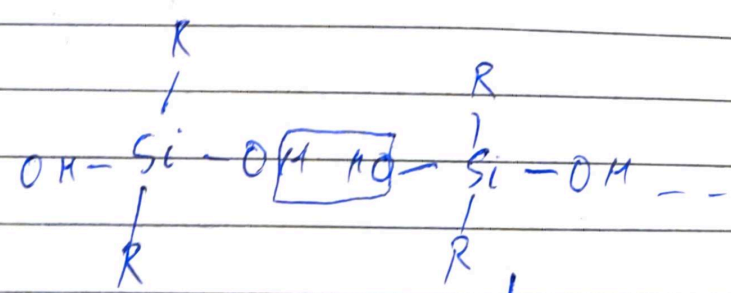 R
R
OH-Si-OH HO-Si-OH --
R
R